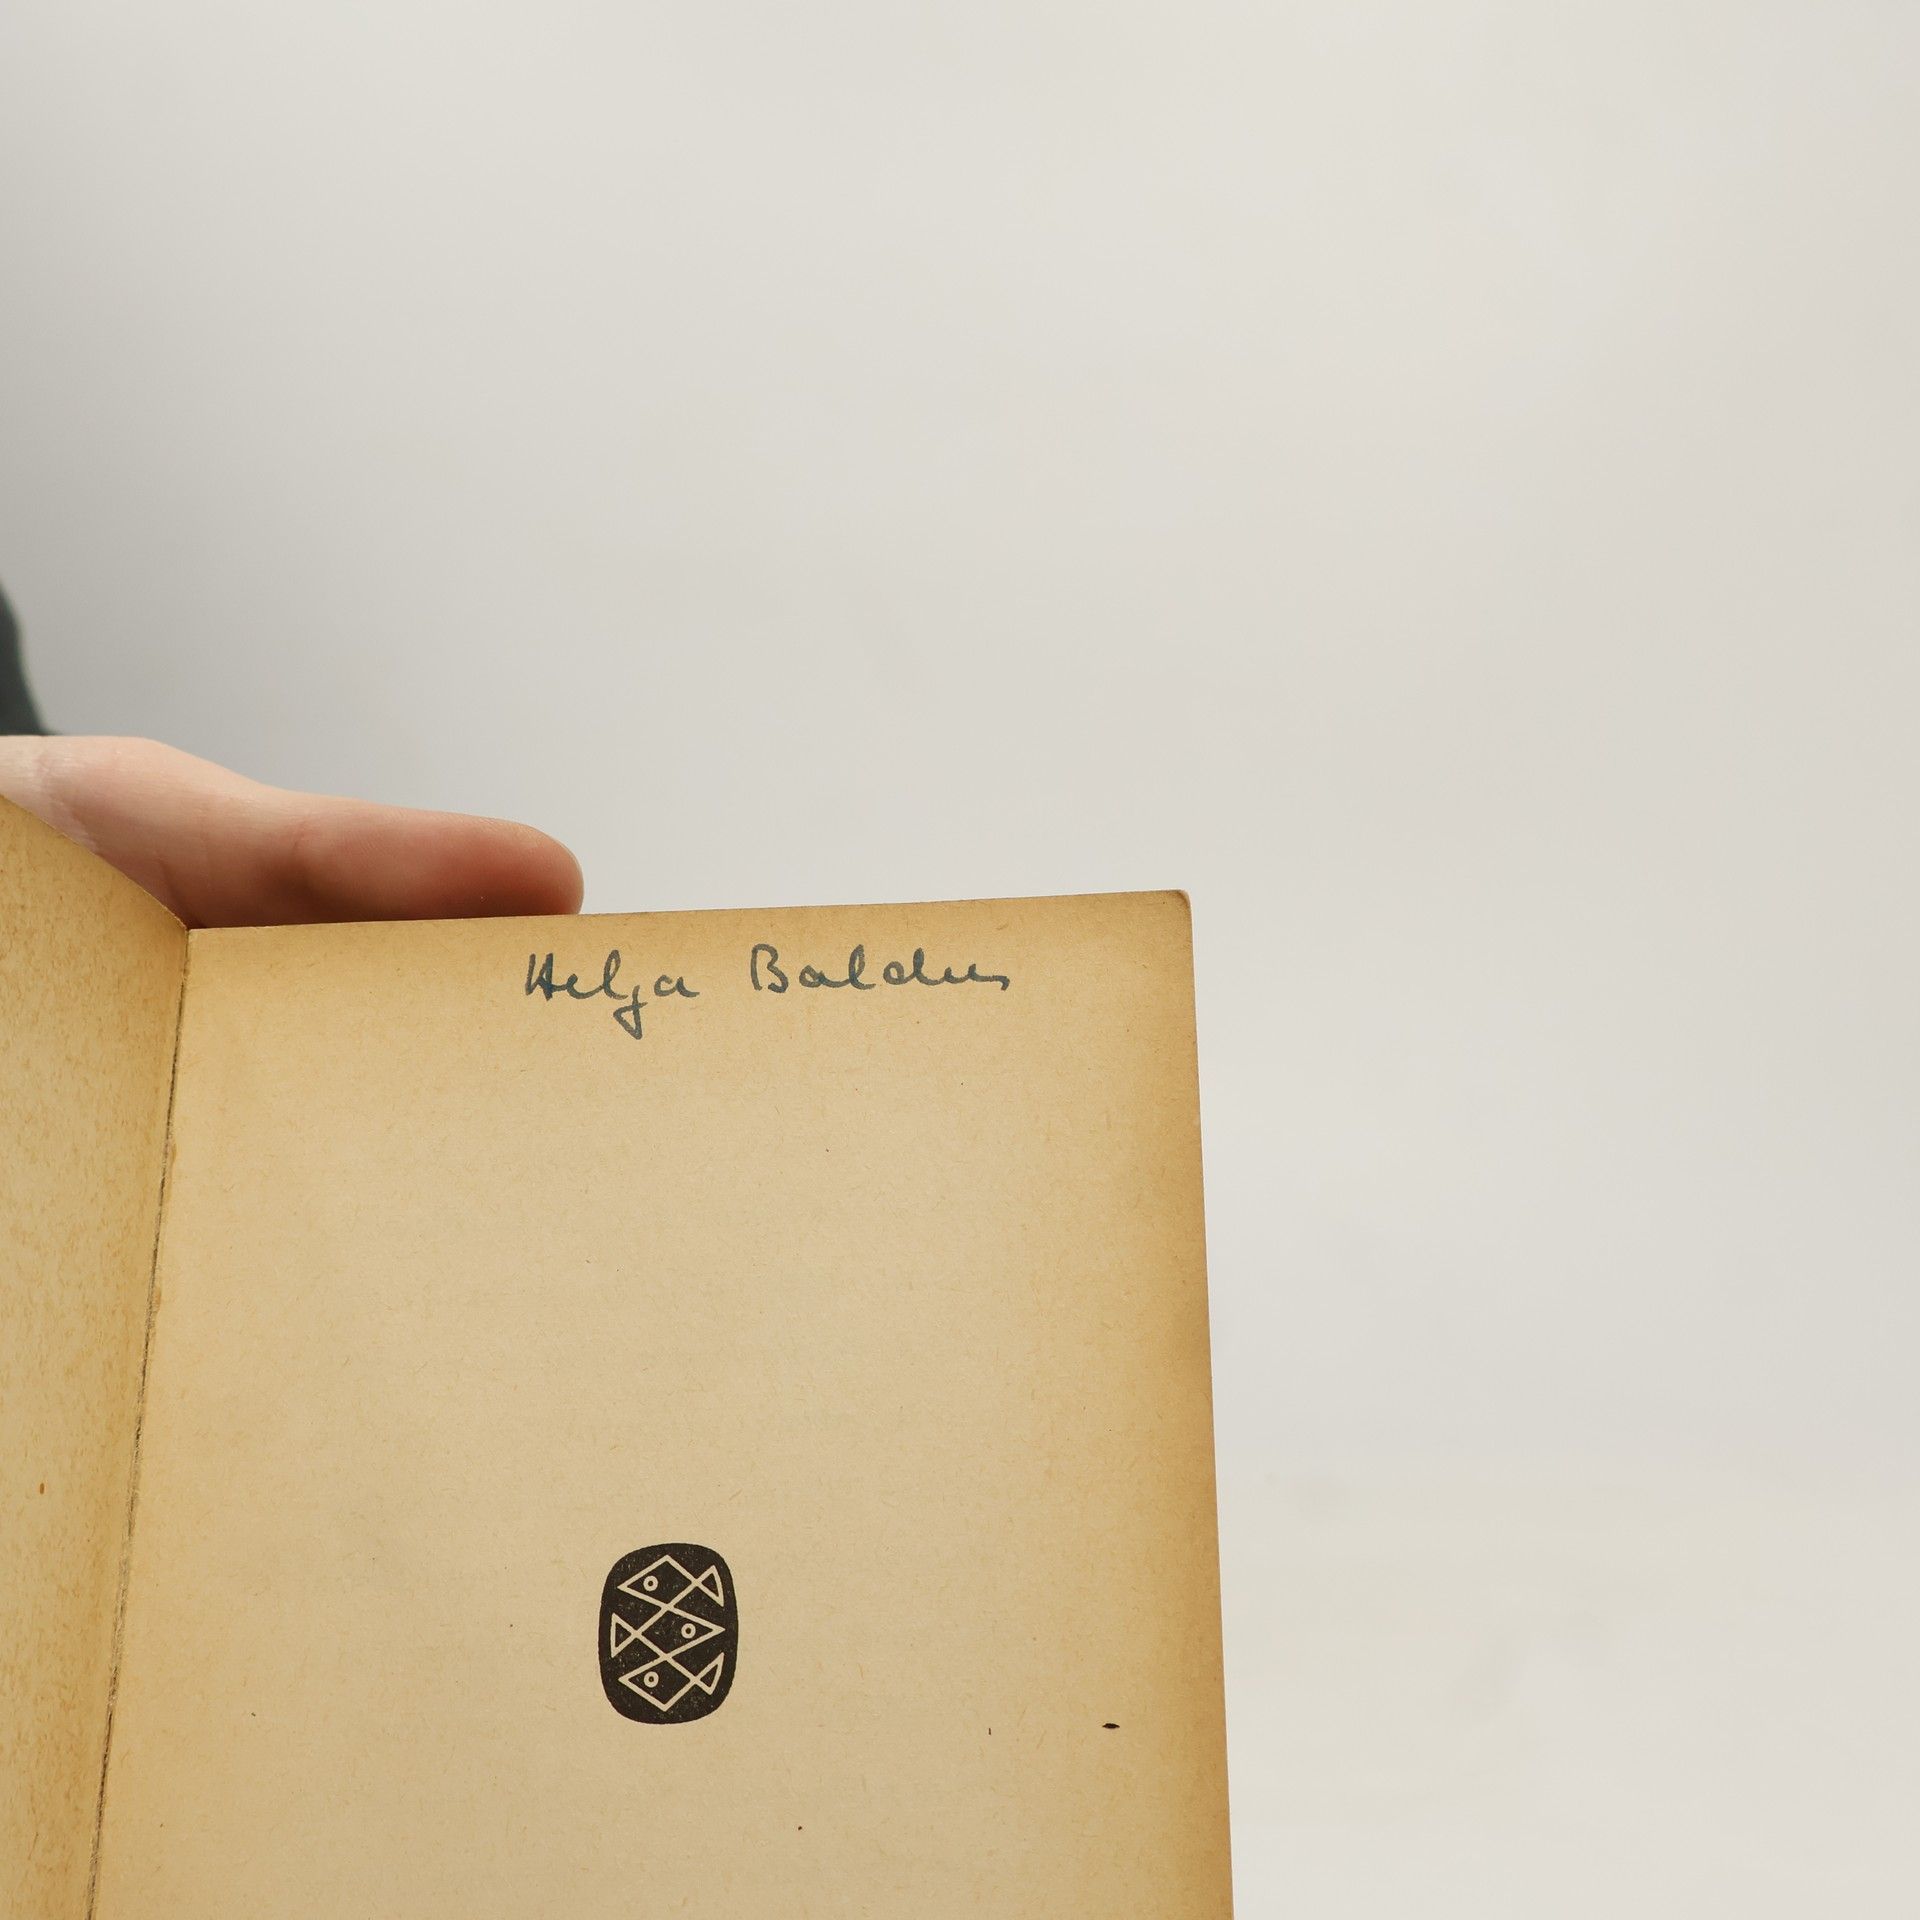 Helga Baldus